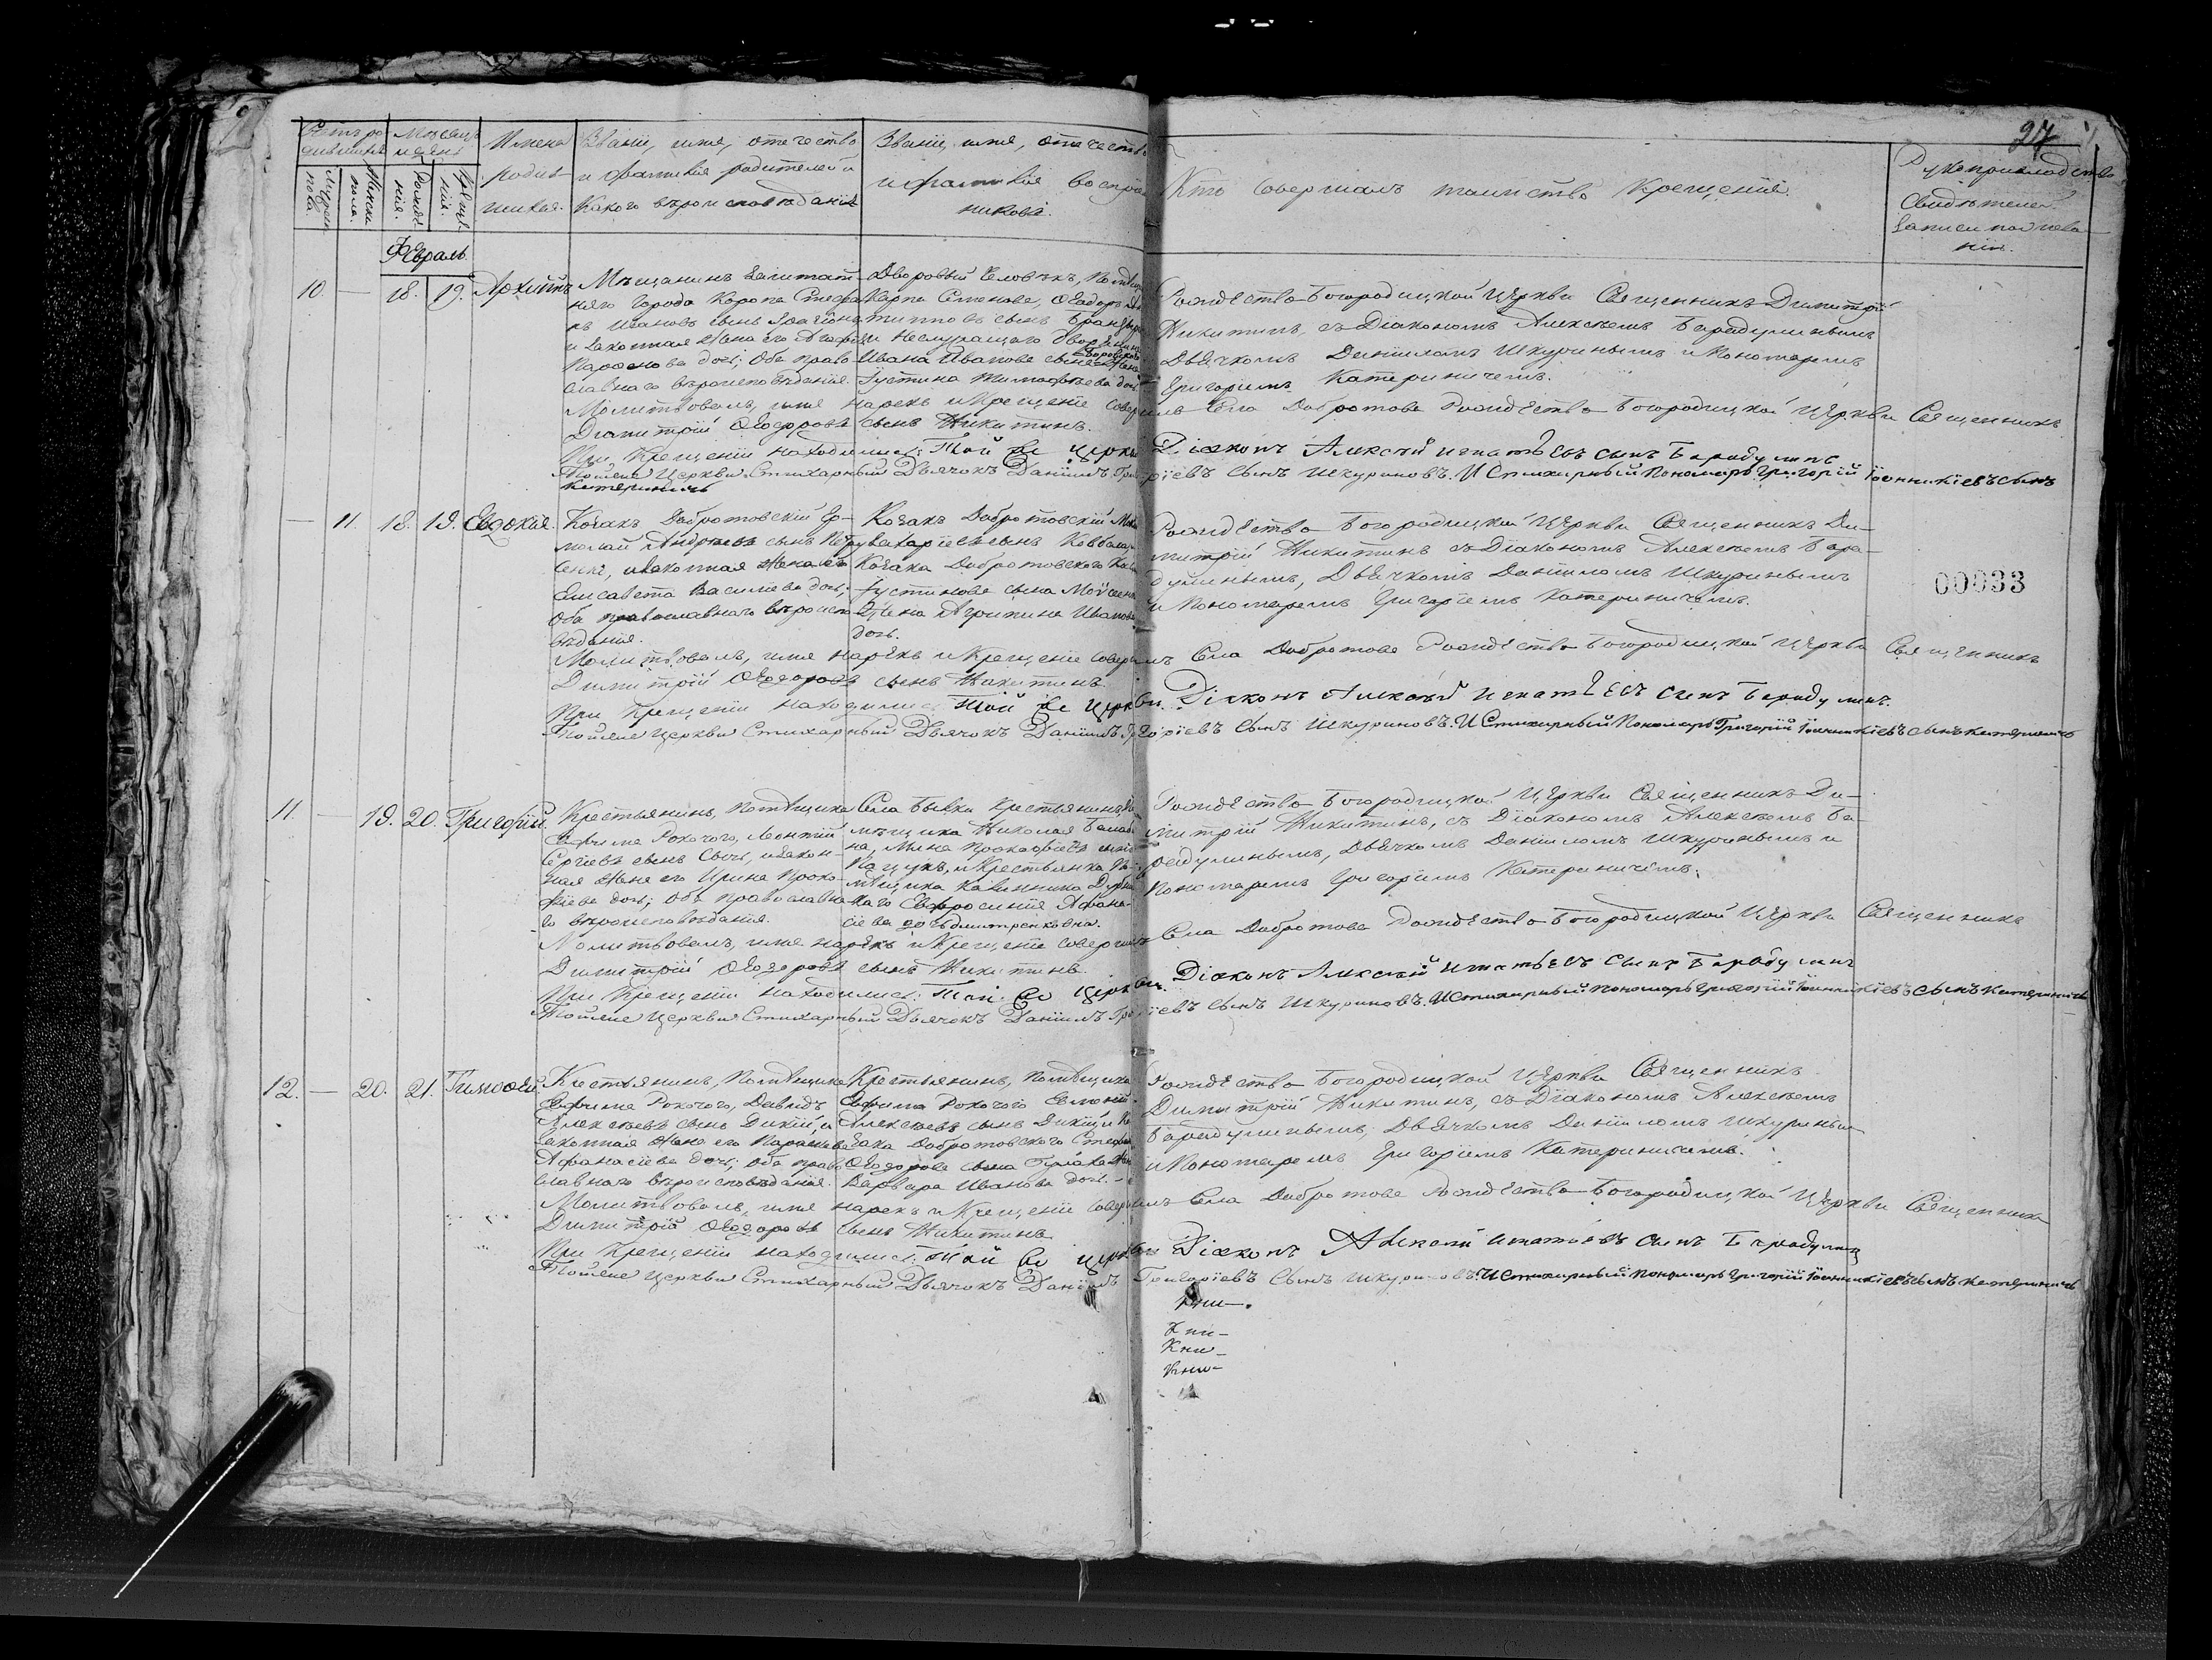 27
Счетъ ро
дившихся
Мужеска
пола.
Женска
пола.
Месяцъ
и день
Рождения.
Крещения.
Имена
родив
шихся.
Званіе, имя, отечество
и фамилія родителей и
какого вѣроисповѣданія
Званіе, имя, отечество
и фамилія воспріем
никовъ.
Кто совершалъ таинство крещенія.
Рукоприкладство
свидѣтелей
записи по желанію
Февраль
10. — 18. 19.
Мѣщанинъ заштат
наго города Коропа Стефа
нъ Ивановъ сынъ
и законная жена его Агафія
дочь; оба право
славнаго вѣроисповѣданія.
Дворовый человѣкъ,
Карпа Семенова, Ѳеодоръ
сынъ
и неслужащаго дворянина
Ивана Иванова сына жена
Іустина Тимоѳѣева дочь
Рождество-Богородицкой Церкви Священникъ Димитрій
Никитинъ, съ Діакономъ Алексѣемъ Барадулинымъ
Дьячкомъ Даніиломъ Шкуринымъ и Пономаремъ
Григоріемъ Катериничемъ.
Молитвовалъ, имя нарекъ и крещеніе совершилъ Села Добротова Рождество-Богородицкой Церкви Священникъ
Димитрій Ѳеодоровъ сынъ Никитинъ.
При крещеніи находились: Той же церкви Діаконъ Алексѣй Игнатьевъ сынъ Барадулинъ
Тойже Церкви Стихарный Дьячокъ Даніилъ Григоріевъ сынъ Шкуриновъ. И Стихарный Пономарь Григорій Іоанникіевъ сынъ
Катериничь
— 11. 18. 19. Евдокія.
Козакъ Добротовскій Ер-
молай Андреевъ сынъ
и законная жена его
Елисавета Васильева дочь;
Оба православнаго вѣроиспо
вѣданія.
Козакъ Добротовскій
Захаріевъ сынъ
Козака Добротовского
Іустинова сына
жена Агрипина Иванова
дочь.
Рождество-Богородицкой Церкви Священникъ Ди-
митрій Никитинъ съ Діакономъ Алексѣемъ Бара-
дулинымъ, Дьячкомъ Даніиломъ Шкуринымъ
и Пономаремъ Григоріемъ Катериничемъ.
00033
Молитвовалъ, имя нарекъ и крещеніе совершилъ Села Добротова Рождество-Богородицкой Церкви Священникъ
Димитрій Ѳеодоровъ сынъ Никитинъ.
При крещеніи находились: Той же церкви Діаконъ Алексѣй Игнатьевъ сынъ Барадулинъ.
Тойже Церкви Стихарный Дьячокъ Даніилъ Григоріевъ сынъ Шкуриновъ. И Стихарный Пономарь Григорій Іоанникіевъ сынъ Катериничь
11. — 19. 20. Григорій.
Крестьянинъ, помѣщика
Ефима Рокочого, Леонтій
Сергіевъ сынъ и закон-
ная жена его Ирина Проко-
фіева дочь; оба православна
го вѣроисповѣданія.
Села Быкки крестьянинъ,
мѣщика Николая
на, Мина Прокофіевъ сынъ
и крестьянка по
мѣщика
Евфросинія Афана-
сіева дочь Дмитренковна.
Рождество-Богородицкой Церкви Священникъ Ди-
митрій Никитинъ, съ Діакономъ Алексѣемъ Ба-
радулинымъ, Дьячкомъ Даніиломъ Шкуринымъ и
Пономаремъ Григоріемъ Катериничемъ.
Молитвовалъ, имя нарекъ и крещеніе совершилъ Села Добротова Рождество-Богородицкой Церкви Священникъ
Димитрій Ѳеодоровъ сынъ Никитинъ.
При крещеніи находились: Той же церкви Діаконъ Алексѣй Игнатьевъ сынъ Барадулинъ
Тойже Церкви Стихарный Дьячокъ Даніилъ Григоріевъ сынъ Шкуриновъ. И Стихарный Пономарь Григорій Іоанникіевъ сынъ Катериничь
12. — 20. 21. Тимоѳей
Крестьянинъ, помѣщика
Ефима Рокочого, Давидъ
Алексѣевъ сынъ Дикій, и
законная жена его Параскева
Афанасіева дочь; оба право
славнаго вѣроисповѣданія.
Крестьянинъ, помѣщика
Ефима Рокочого
Алексѣевъ сынъ Дикій, и Ко
зака Добротовского Стефана
Ѳеодорова сына жена
Варвара Иванова дочь.
Рождество-Богородицкой Церкви Священникъ
Димитрій Никитинъ, съ Діакономъ Алексѣемъ
Барадулинымъ, Дьячкомъ Даніиломъ Шкуринымъ
и Пономаремъ Григоріемъ Катериничемъ.
Молитвовалъ, имя нарекъ и крещеніе совершилъ Села Добротова Рождество-Богородицкой Церкви Священникъ
Димитрій Ѳеодоровъ сынъ Никитинъ
При крещеніи находились: Той же церкви Діаконъ Алексѣй Игнатіевъ сынъ Барадулинъ
Тойже Церкви Стихарный Дьячокъ Даніилъ Григоріевъ сынъ Шкуриновъ. И Стихарный Пономарь Григорій Іоанникіевъ сынъ Катериничь
Кни-
Кни-